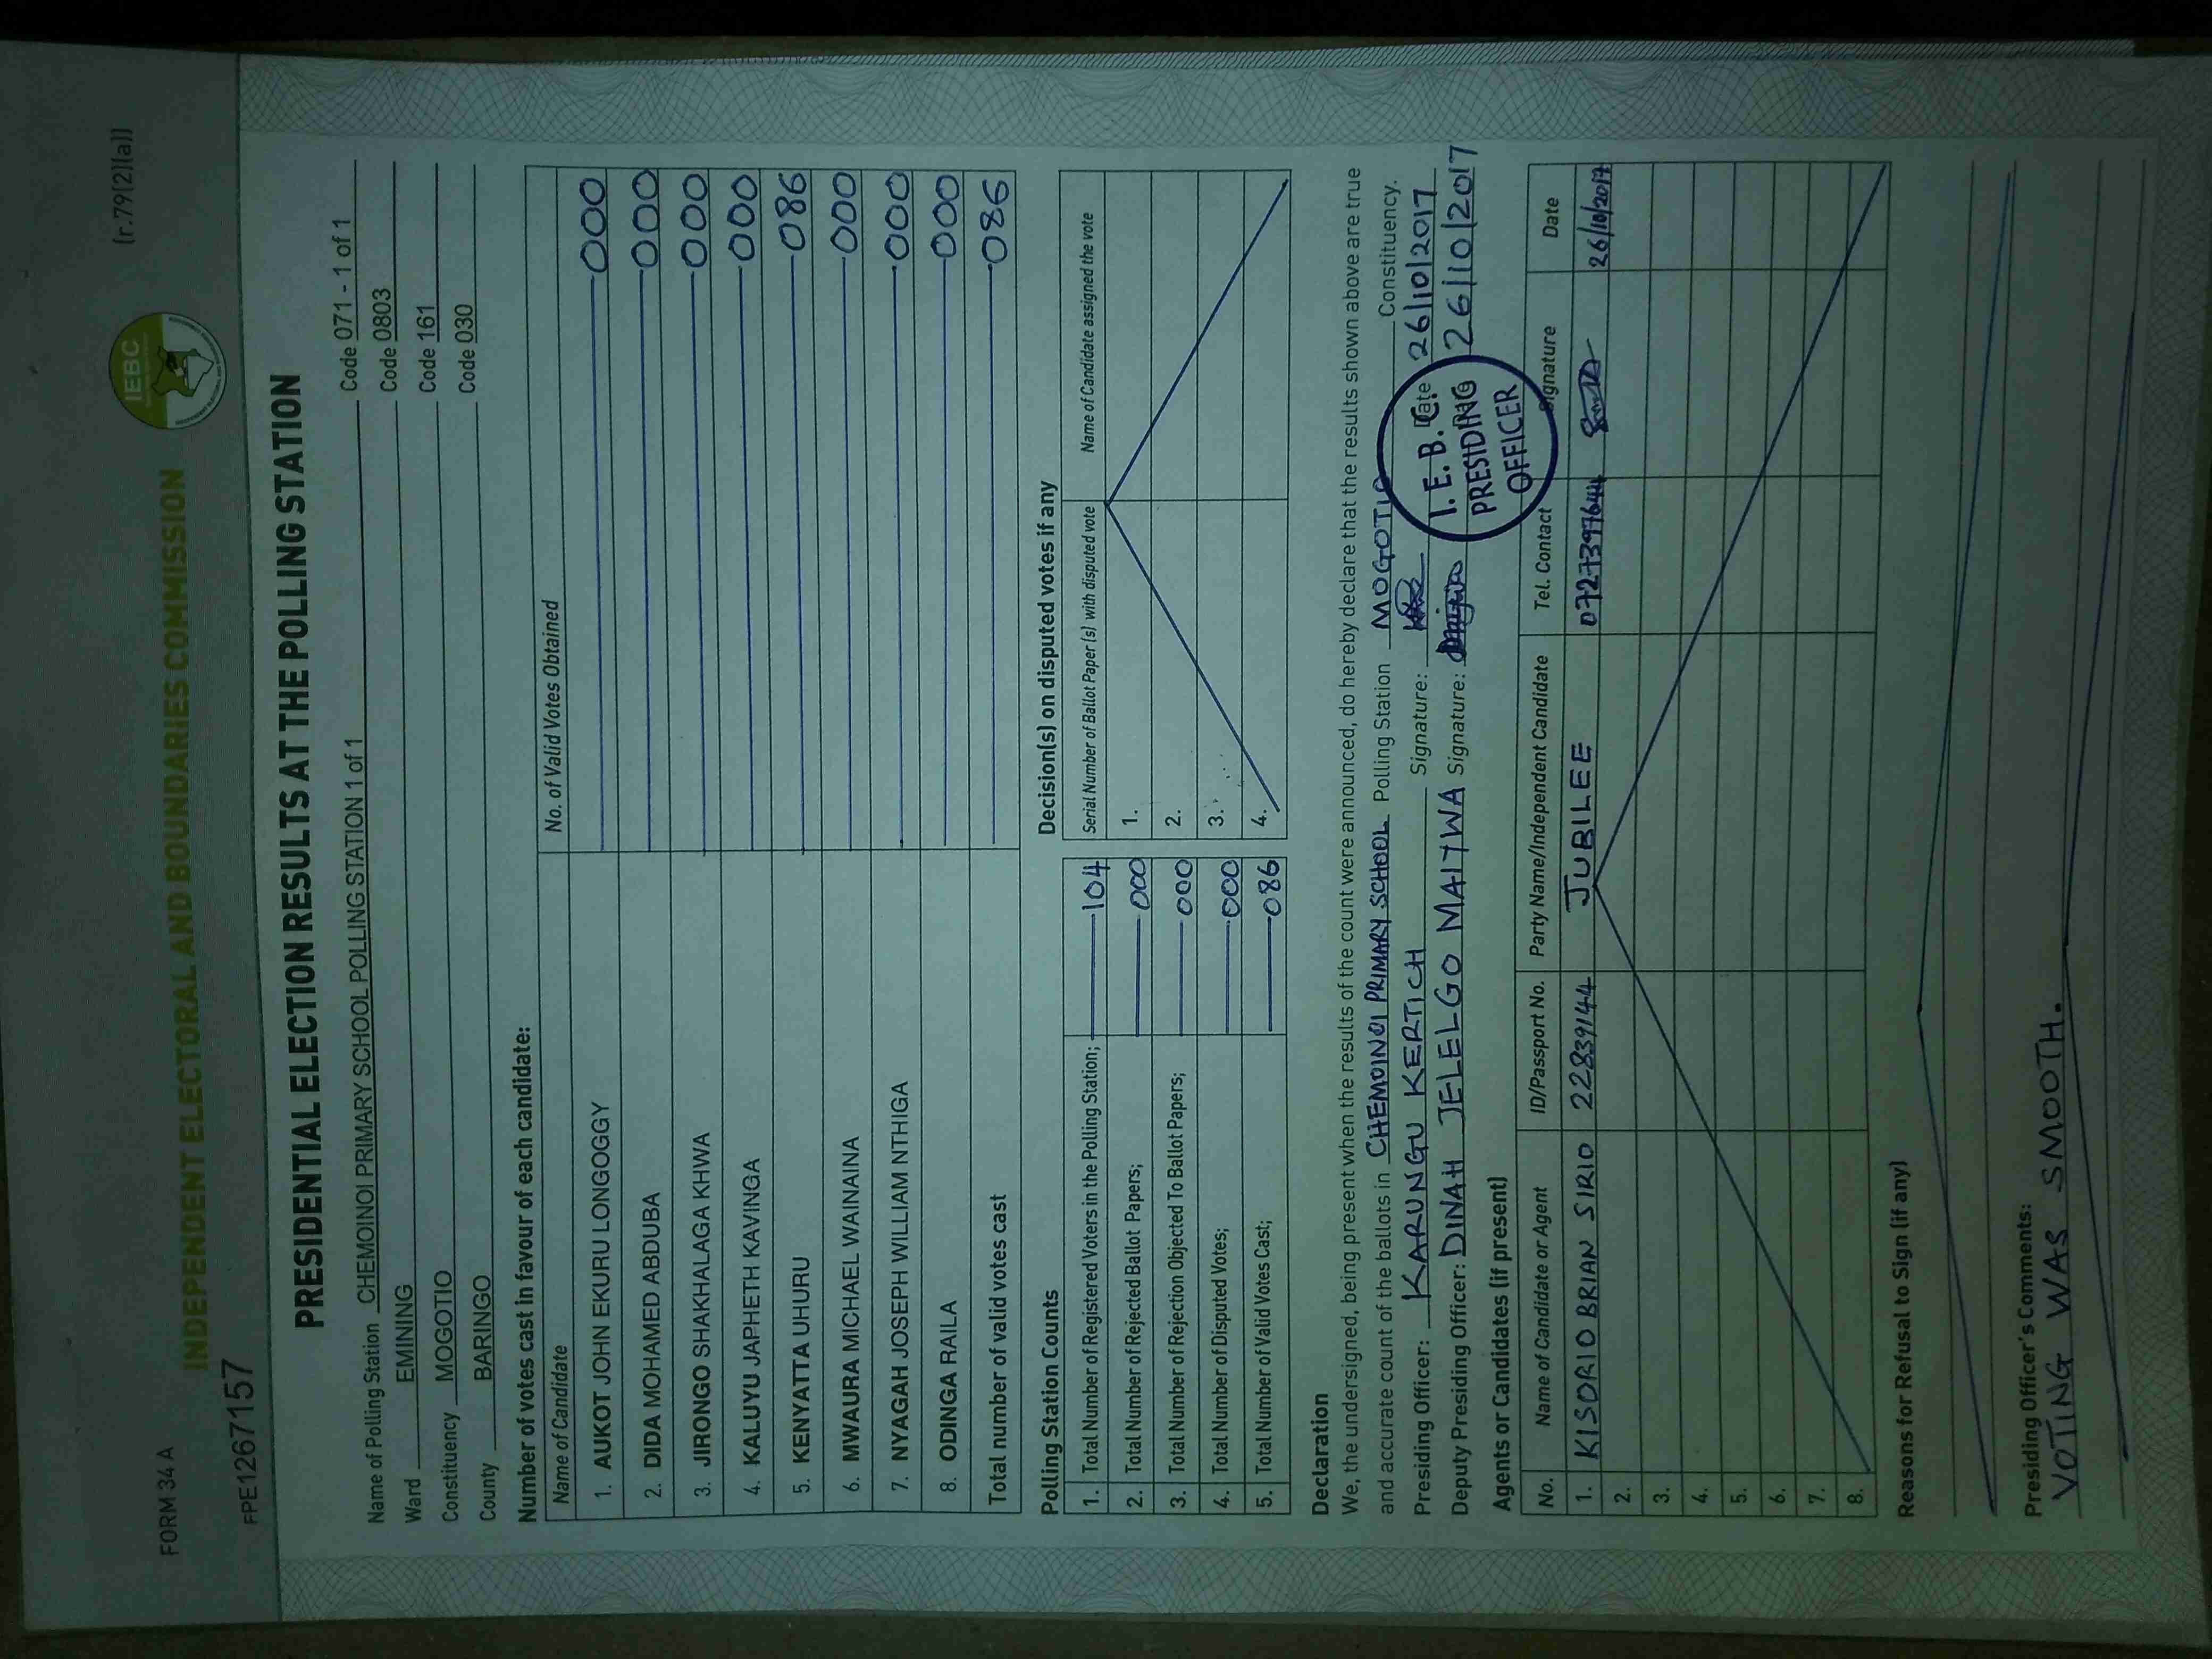 FORM 34 A
(r.79(2)(a))
IEBC
INDEPENDENT ELECTORAL AND BOUNDARIES COMMISSION
FPE1267157
PRESIDENTIAL ELECTION RESULTS AT THE POLLING STATION
Name of Polling Station CHEMOINOI PRIMARY SCHOOL POLLING STATION 1 of 1 Code 071 - 1 of 1
Ward EMINING Code 0803
Constituency MOGOTIO Code 161
County BARINGO Code 030
Number of votes cast in favour of each candidate:
Name of Candidate No. of Valid Votes Obtained
1. AUKOT JOHN EKURU LONGOGGY 000
2. DIDA MOHAMED ABDUBA 000
3. JIRONGO SHAKHALAGA KHWA 000
4. KALUYU JAPHETH KAVINGA 000
5. KENYATTA UHURU 086
6. MWAURA MICHAEL WAINAINA 000
7. NYAGAH JOSEPH WILLIAM NTHIGA 000
8. ODINGA RAILA 000
Total number of valid votes cast 086
Polling Station Counts
1. Total Number of Registered Voters in the Polling Station; 104
2. Total Number of Rejected Ballot Papers; 000
3. Total Number of Rejection Objected To Ballot Papers; 000
4. Total Number of Disputed Votes; 000
5. Total Number of Valid Votes Cast; 086
Decision(s) on disputed votes if any
Serial Number of Ballot Paper (s) with disputed vote Name of Candidate assigned the vote
1.
2.
3.
4.
Declaration
We, the undersigned, being present when the results of the count were announced, do hereby declare that the results shown above are true
and accurate count of the ballots in CHEMOINOI PRIMARY SCHOOL Polling Station MOGOTIO Constituency.
Presiding Officer: KARUNGU KERTICH Signature: Date 26/10/2017
Deputy Presiding Officer: DINAH JELELGO MAIYWA Signature: 26/10/2017
I.E.B.C.
PRESIDING
OFFICER
Agents or Candidates (if present)
No. Name of Candidate or Agent ID/Passport No. Party Name/Independent Candidate Tel. Contact Signature Date
1. KISORIO BRIAN SIRIO 22839144 JUBILEE 26/10/2017
2.
3.
4.
5.
6.
7.
8.
Reasons for Refusal to Sign (if any)
Presiding Officer's Comments:
VOTING WAS SMOOTH.